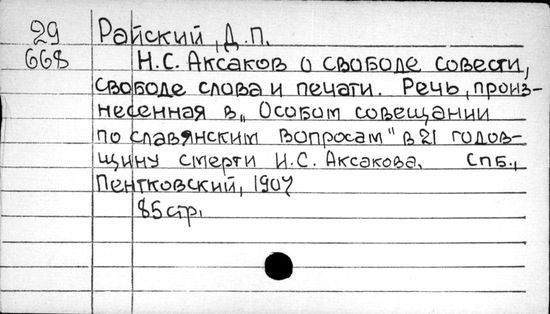 29 Райский, Д.П.
668 Н.С. Аксаков о свободе совести,
свободе слова и печати. Речь, произ-
несенная в „Особом совещании
по славянским вопросам" в 21 годов-
щину смерти И.С. Аксакова. Спб.,
Пентковский, 1907
85 стр.